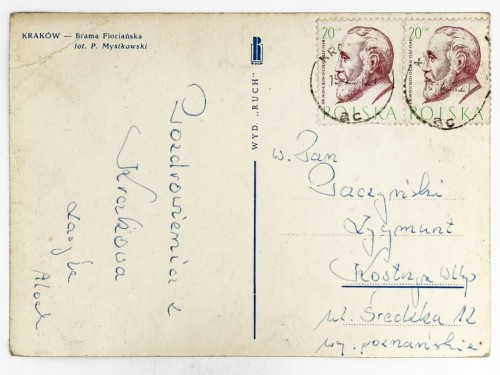 KRAKÓW — Brama Floriańska
fot. P. Mystkowski
Pozdrowienia z
Krakowa
WYD. „RUCH"
RUCH
20 GR
POLSKA
20 GR
POLSKA
W. Pan
Paczyński
Zygmunt
Kostrzyn Wlkp
ul. Średzka 12
woj. poznańskie